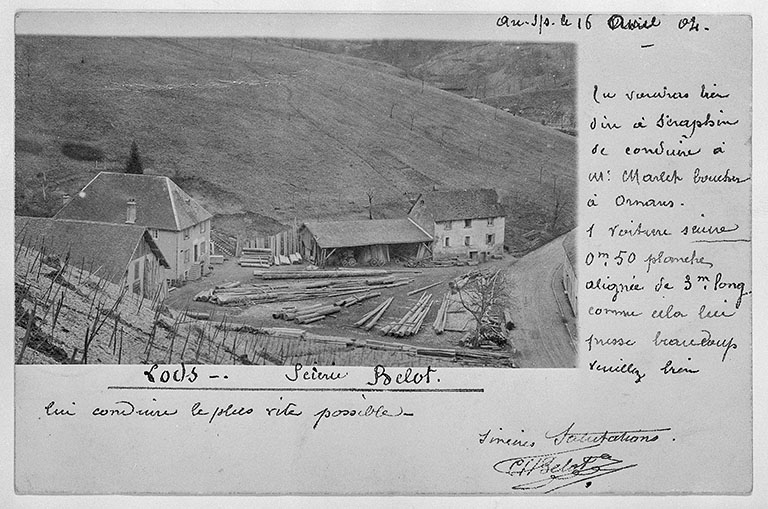 Au-J/s. le 16 Avril 04.
Tu voudras bien
dire à Séraphin
de conduire à
Mr. Maréch boucher
à Ornans.
1 voiture sciure
0m,50 planche
alignée de 3m, long.
comme cela lui
presse beaucoup
veuillez bien
LODS -. Scierie Belot.
lui conduire le plus vite possible -
Sincères Salutations.
Belot